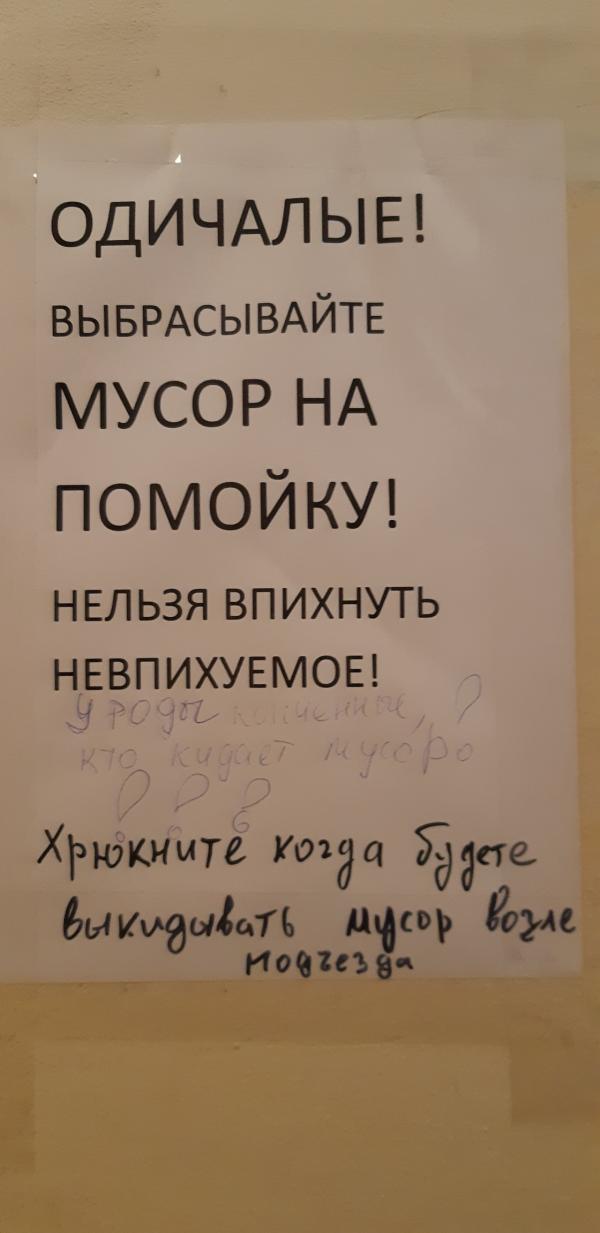 ОДИЧАЛЫЕ!
ВЫБРАСЫВАЙТЕ
МУСОР НА
ПОМОЙКУ!
НЕЛЬЗЯ ВПИХНУТЬ
НЕВПИХУЕМОЕ!
Уроды конченные,
кто кидает мусор
Хрюкните когда будете
выкидывать мусор возле
подъезда